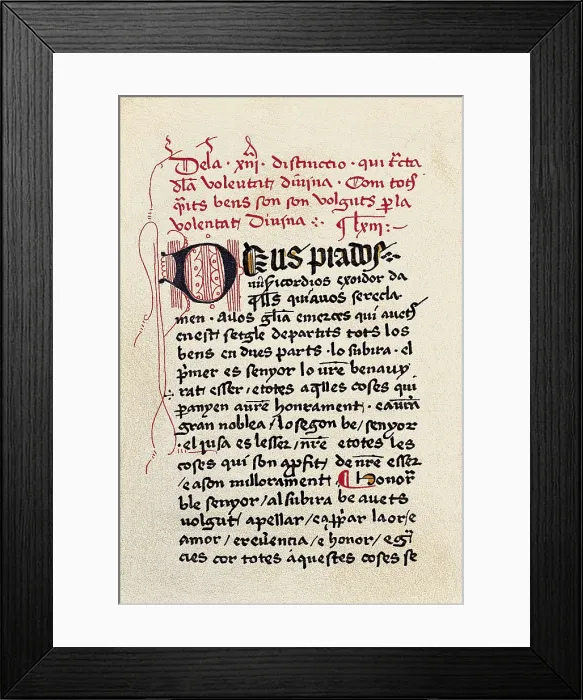 Dela · xiiij · distinccio · qui tracta
dla voluntat diuina · Com tots
qñts bens son son volguts p la
volentat Diuina · ¶ lxiij :~
DEUS piados
misericordios exoidor da
qlls qui auos serecla
men · A uos glia e merces qui auets
en est setgle departits tots los
bens en dues parts · lo subira · el
pmer es senyor lo ure benauy
rat esser / e totes aqlles coses qui
panyen a ure honrament · e a ura
gran noblea / lo segon be / senyor
· el jusa es lesser / nre e totes les
coses qui son a profit de nre esser
/ e a son millorament / ¶ honor
ble senyor / al subira be auets
volgut apellar / e appar laor / e
amor / e reuerencia / e honor / e gr
cies cor totes aquestes coses se